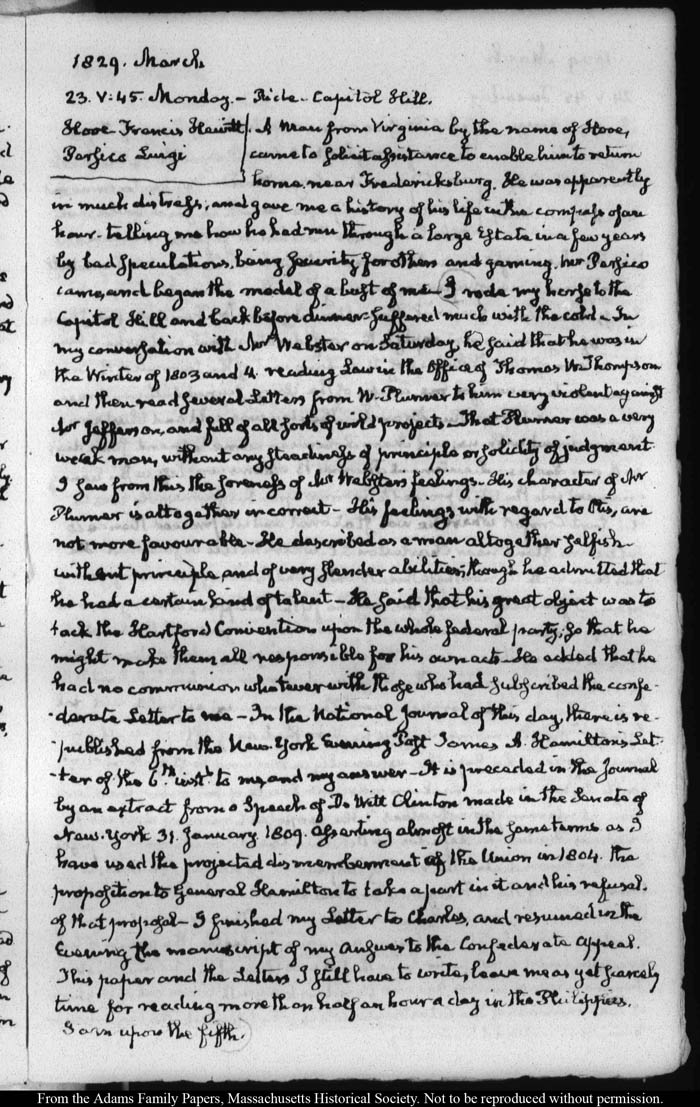 1829. March.
23. V:45. Monday. – Ride – Capitol Hill.
Hooe Francis Hewitt
Persico Luigi
A Man from Virginia by the name of Hooe,
came to solicit assistance to enable him to return
home, near Fredericksburg. He was apparently
in much distress; and gave me a history of his life in the compass of an
hour – telling me how he had run through a large Estate in a few years
by bad speculations, being security for others and gaming. Mr Persico
came, and began the model of a bust of me – I rode my horse to the
Capitol Hill and back before dinner – suffered much with the cold – In
my conversation with Mr Webster on Saturday, he said that he was in
the Winter of 1803 and 4. reading Law in the Office of Thomas W. Thompson
and then read several Letters from W. Plumer to him very violent against
Mr Jefferson, and full of all sorts of wild projects – That Plumer was a very
weak man, without any steadiness of principle or solidity of judgment.
I saw from this the soreness of Mr Webster's feelings – His character of Mr
Plumer is altogether incorrect – His feelings with regard to Otis, are
not more favourable – He described as a man altogether selfish
without principle, and of very slender abilities; though he admitted that
he had a certain kind of talent – He said that his great object was to
tack the Hartford Convention upon the whole federal party; so that he
might make them all responsible for his own acts – He added that he
had no communion whatever with those who had subscribed the confe-
-derate Letter to me – In the National Journal of this day, there is re-
-published from the New-York Evening Post James A. Hamilton's Let-
-ter of the 6th inst. to me, and my answer – It is preceded in the Journal
by an extract from a Speech of De Witt Clinton made in the Senate of
New-York 31. January 1809. asserting almost in the same terms as I
have used the projected dismemberment of the Union in 1804. the
proposition to General Hamilton to take a part in it and his refusal.
of that proposal – I finished my Letter to Charles, and resumed in the
Evening the manuscript of my answer to the Confederate appeal.
This paper and the Letters I still have to write, leave me as yet scarcely
time for reading more than half an hour a day in the Philippics.
I am upon the fifth.
From the Adams Family Papers, Massachusetts Historical Society. Not to be reproduced without permission.